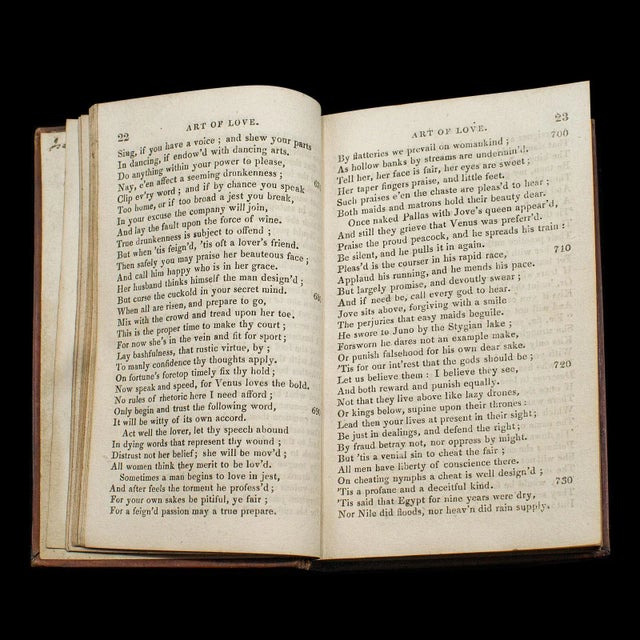 22
ART OF LOVE.
Sing, if you have a voice; and shew your parts
In dancing, if endow'd with dancing arts.
Do anything within your power to please,
Nay, e'en affect a seeming drunkenness;
Clip ev'ry word; and if by chance you speak
Too home, or if too broad a jest you break,
In your excuse the company will join,
And lay the fault upon the force of wine.
True drunkenness is subject to offend;
But when 'tis feign'd, 'tis oft a lover's friend.
Then safely you may praise her beauteous face;
And call him happy who is in her grace.
Her husband thinks himself the man design'd;
But curse the cuckold in your secret mind.
When all are risen, and prepare to go,
Mix with the crowd and tread upon her toe.
This is the proper time to make thy court;
For now she's in the vein and fit for sport;
Lay bashfulness, that rustic virtue, by;
To manly confidence thy thoughts apply.
On fortune's foretop timely fix thy hold;
Now speak and speed, for Venus loves the bold.
No rules of rhetoric here I need afford;
Only begin and trust the following word,
It will be witty of its own accord.
Act well the lover, let thy speech abound
In dying words that represent thy wound;
Distrust not her belief; she will be mov'd;
All women think they merit to be lov'd.
Sometimes a man begins to love in jest,
And after feels the torment he profess'd;
For your own sakes be pitiful, ye fair;
For a feign'd passion may a true prepare.
ART OF LOVE.
23
By flatteries we prevail on womankind; 700
As hollow banks by streams are undermin'd.
Tell her, her face is fair, her eyes are sweet;
Her taper fingers praise, and little feet.
Such praises e'en the chaste are pleas'd to hear;
Both maids and matrons hold their beauty dear.
Once naked Pallas with Jove's queen appear'd,
And still they grieve that Venus was preferr'd.
Praise the proud peacock, and he spreads his train:
Be silent, and he pulls it in again.
Pleas'd is the courser in his rapid race, 710
Applaud his running, and he mends his pace.
But largely promise, and devoutly swear;
And if need be, call every god to hear.
Jove sits above, forgiving with a smile
The perjuries that easy maids beguile.
He swore to Juno by the Stygian lake;
Forsworn he dares not an example make,
Or punish falsehood for his own dear sake.
'Tis for our int'rest that the gods should be;
Let us believe them: I believe they see, 720
And both reward and punish equally.
Not that they live above like lazy drones,
Or kings below, supine upon their thrones:
Lead then your lives at present in their sight;
Be just in dealings, and defend the right;
By fraud betray not, nor oppress by might.
But 'tis a venial sin to cheat the fair;
All men have liberty of conscience there.
On cheating nymphs a cheat is well design'd;
'Tis a profane and a deceitful kind. 730
'Tis said that Egypt for nine years were dry,
Nor Nile did floods, nor heav'n did rain supply.